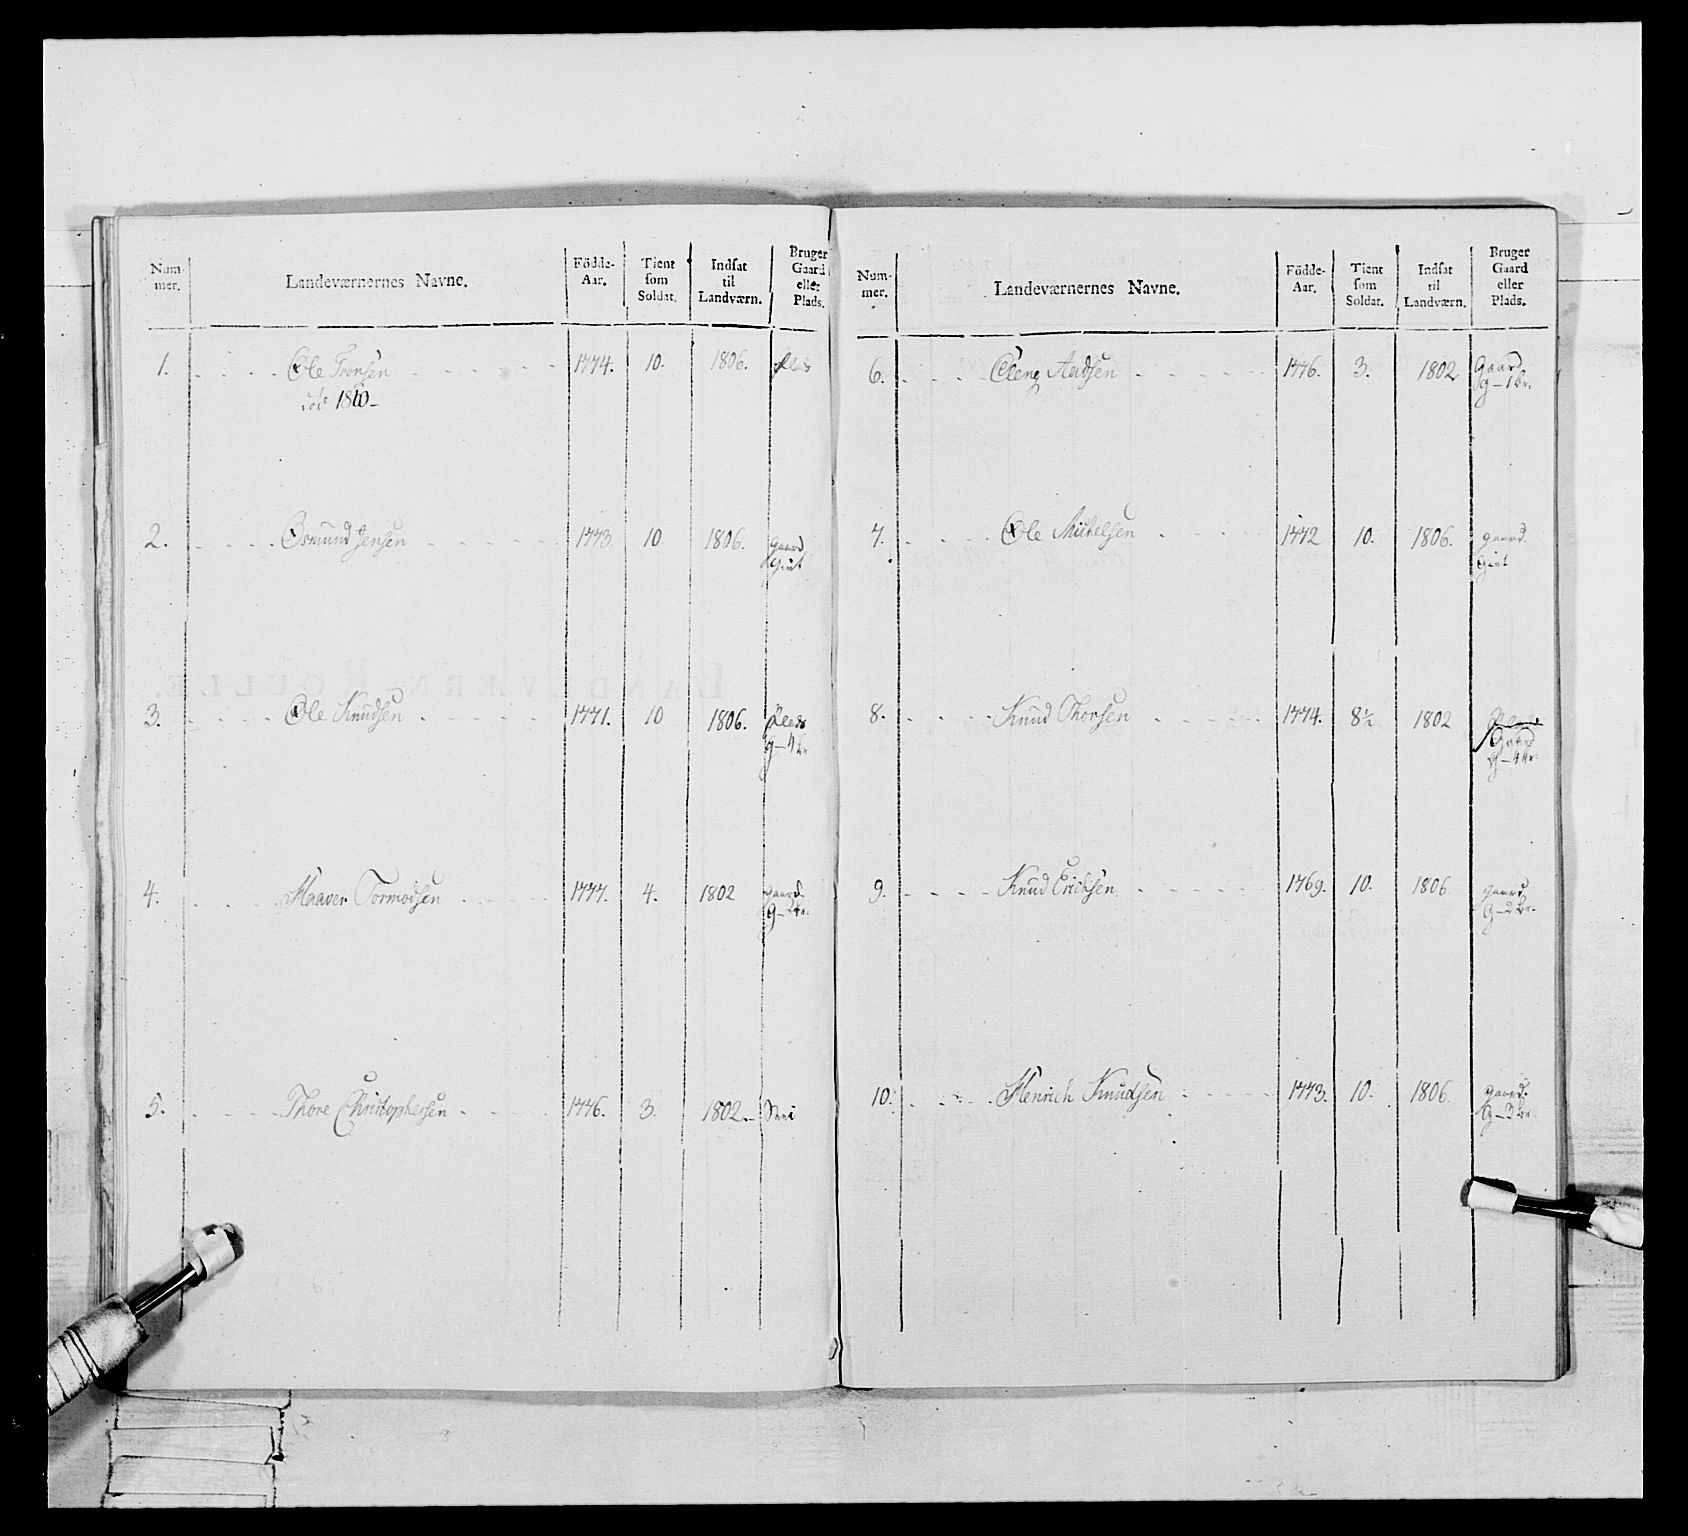 Num-
mer.
Landeværnernes Navne.
Födde-
Aar.
Tient
som
Soldat.
Indsat
til
Landværn.
Bruger
Gaard
eller
Plads.
1. Ole Tronsen 1774. 10. 1806. Plads
död 1810-
2. Osmund Jensen 1773. 10 1806. gaard
Givt
3. Ole Knudsen 1771. 10 1806. Plads
g-4 br
4. Haaver Tormodsen 1777. 4. 1802 gaard
G-2 br.
5. Thore Christophersen 1776. 3. 1802.-
Num-
mer.
Landeværnernes Navne.
Födde-
Aar.
Tient
som
Soldat.
Indsat
til
Landværn.
Bruger
Gaard
eller
Plads.
6. Cleng Aadsen 1776. 3. 1802 Gaard
g-1 br.
7. Ole Michelsen 1772 10. 1806. gaard.
Givt
8. Knud Thorsen 1774. 8½ 1802 Plads
Gaard
G-4 br.
9. Knud Erichsen 1769. 10. 1806. gaard
G-2 br.
10. Henrich Knudsen 1773. 10. 1806. gaard.
G-3 br.
LANDEVÆRN ROULLE.